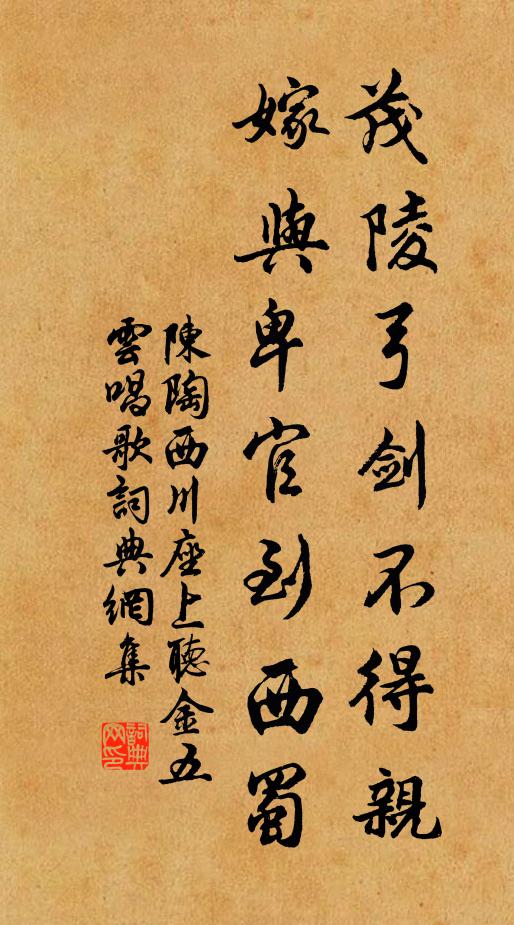 茂陵弓劍不得親
嫁與卑官到西蜀
陳陶西川座上聽金五
雲唱歌詞典網集
詞典
网印